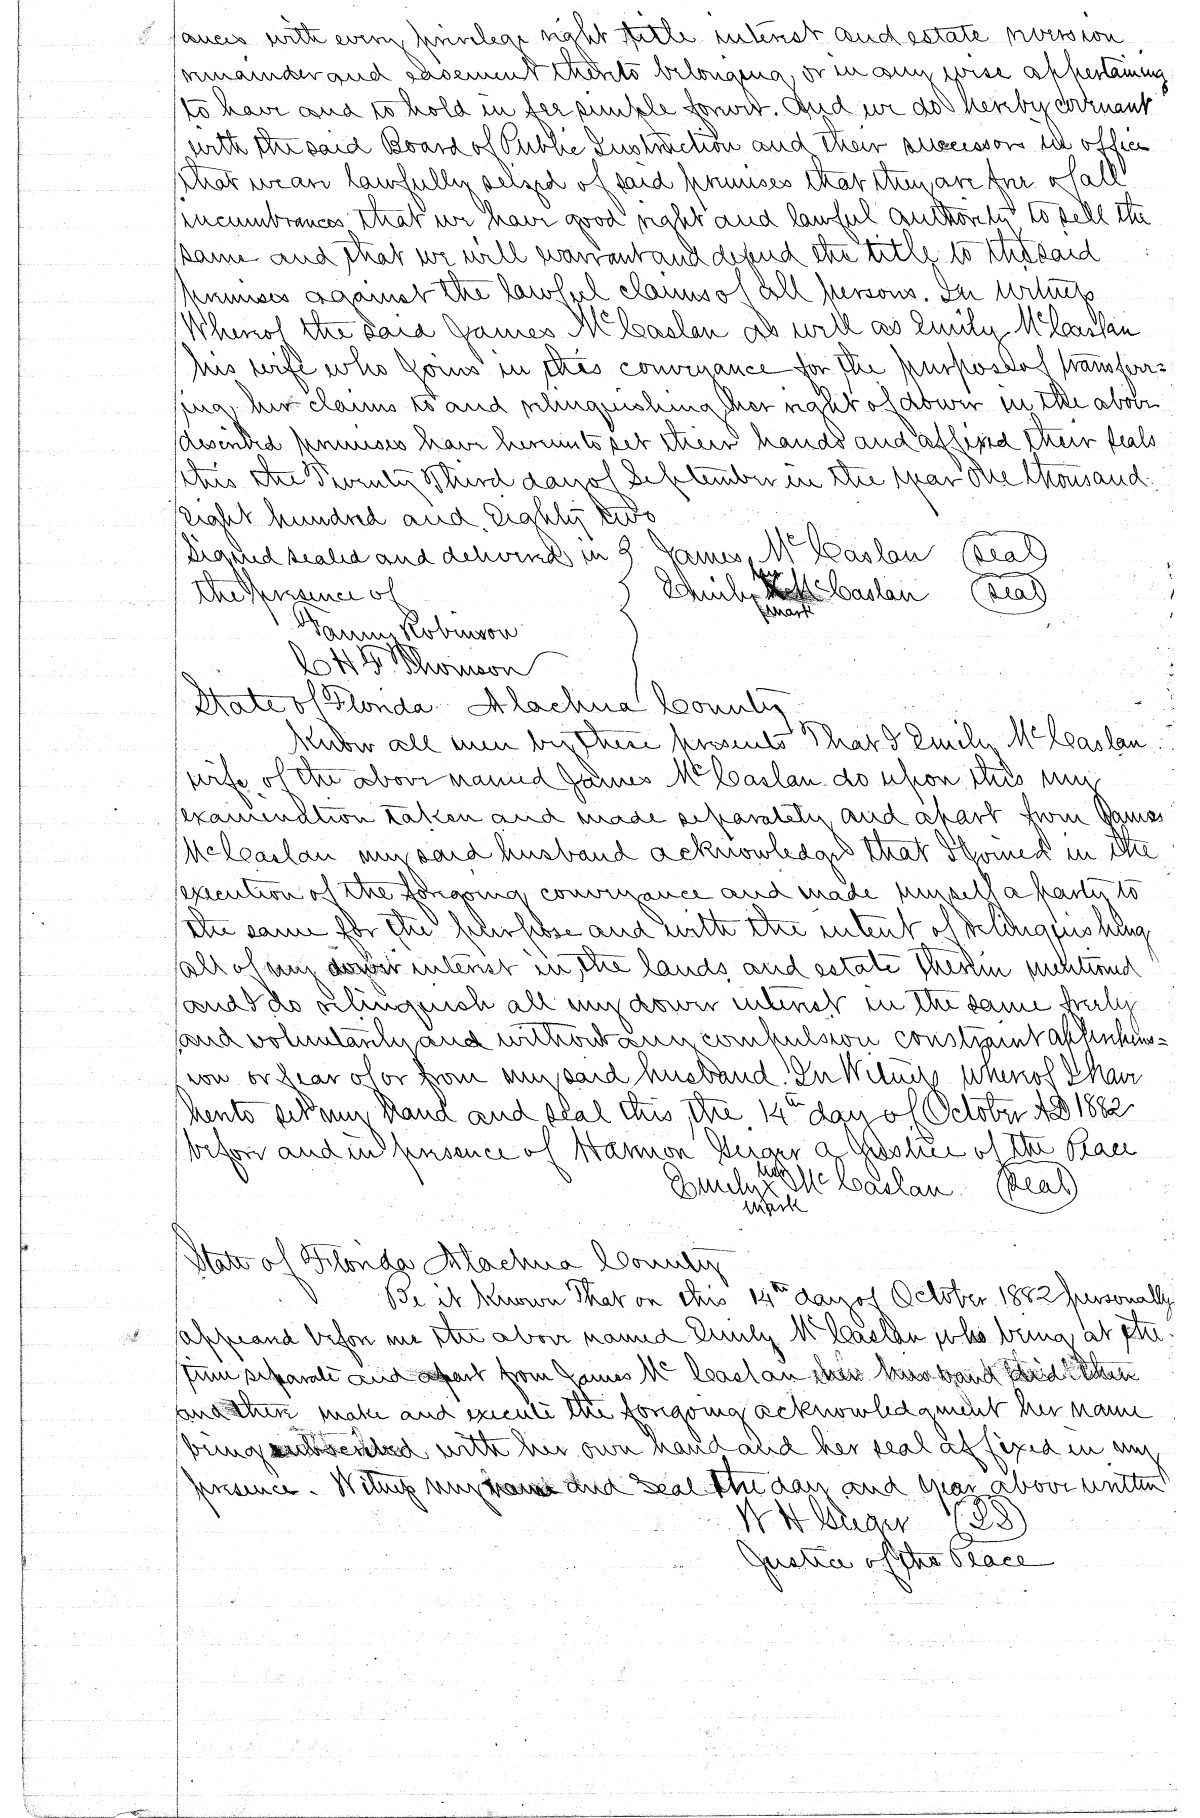 ances with every privilege right title interest and estate reversion
remainder and easement thereto belonging or in any wise appertaining
to have and to hold in fee simple forever. And we do hereby covenant
with the said Board of Public Instruction and their successors in office
that we are lawfully seized of said premises that they are free of all
incumbrances that we have good right and lawful authority to sell the
same and that we will warrant and defend the title to the said
premises against the lawful claims of all persons. In Witness
Whereof the said James McCaslan as well as Emily McCaslan
his wife who joins in this conveyance for the purpose of transferr=
ing her claims to and relinquishing her right of dower in the above
described premises have hereunto set their hands and affixed their seals
this the Twenty Third day of September in the year one thousand
Eight hundred and Eighty two
Signed sealed and delivered in } James McCaslan (seal)
the presence of Emily her x mark McCaslan (seal)
Fanny Robinson
C H F. Thomson
State of Florida Alachua County
Know all men by these presents That I Emily McCaslan
wife of the above named James McCaslan do upon this my
examination taken and made separately and apart from James
McCaslan my said husband acknowledge that I joined in the
execution of the foregoing conveyance and made myself a party to
the same for the purpose and with the intent of relinquishing
all of my dower interest in the lands and estate therein mentioned
and I do relinquish all my dower interest in the same freely
and voluntarily and without any compulsion constraint apprehens=
ion or fear of or from my said husband. In Witness whereof I have
hento set my hand and seal this the 14th day of October AD 1882
before and in presence of Harmon Geiger a Justice of the Peace
Emily her x mark McCaslan (seal)
State of Florida Alachua County
Be it Known That on this 14th day of October 1882 personally
appeared before me the above named Emily McCaslan who being at the
time separate and apart from James McCaslan her husband did then
and there make and execute the foregoing acknowledgment her name
being subscribed with her own hand and her seal affixed in my
presence. Witness my name and seal the day and year above written
W H Geiger (LS)
Justice of the Peace